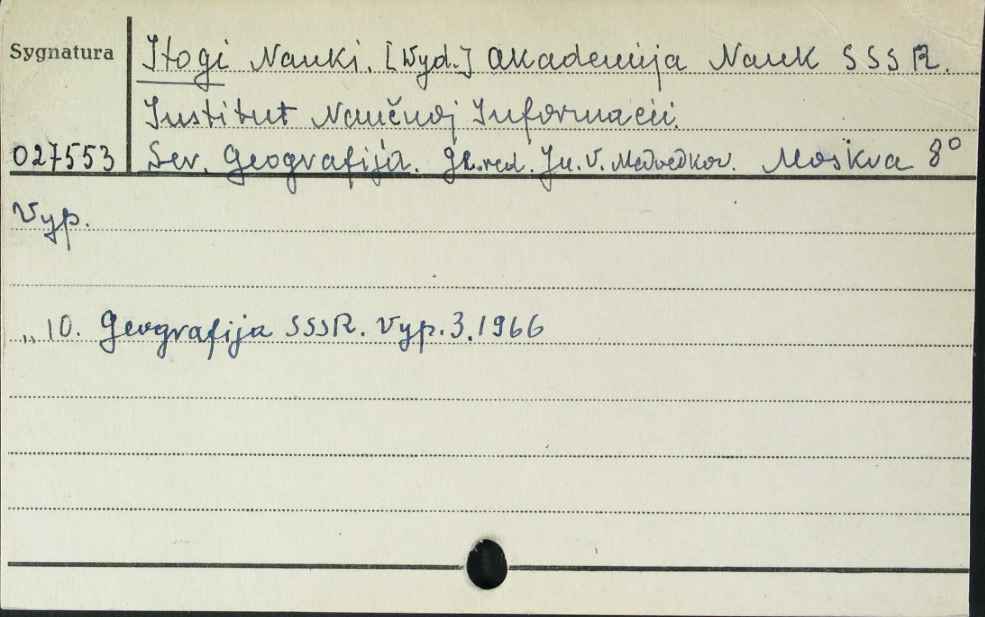 Sygnatura
Itogi Nauki. [Wyd.] Akademija Nauk SSSR.
Institut Naučnoj Informacii.
027553 Ser. Geografija. Gł.red. Ju. V. Medvedkov. Moskva 8°
Vyp.
„ 10. Geografija SSSR. Vyp.3.1966